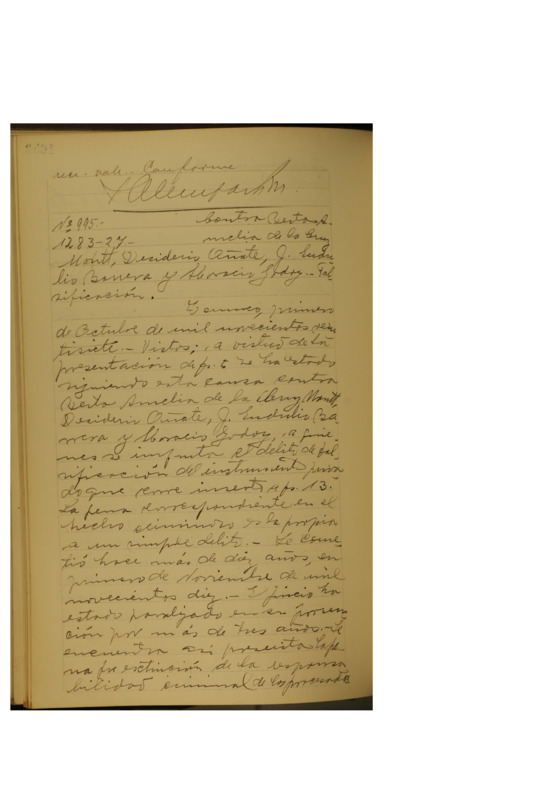 Conforme
Nº 995.- Contra Berta A-
1283-27- melia de la Cruz
Montt, Desiderio Oñate, J. Ludu-
lio Barrera y Horacio Godoy.- Fal
sificación.
Temuco, primero
de Octubre de mil novecientos vein
tisiete.- Vistos; a virtud de la
presentación de fs. se ha estado
siguiendo esta causa contra
Berta Amelia de la Cruz Montt
Desiderio Oñate, J. Ludulio Ba
rrera y Horacio Godoy, a quie
nes se imputa el delito de fal
sificación del instrumento priva
do que corre inserto a fs. 13.
La pena correspondiente en el
hecho criminoso es la propia
a un simple delito.- Se come
tió hace más de diez años, en
primero de Noviembre de mil
novecientos diez.- El juicio ha
estado paralizado en su prosecu
ción por más de tres años.- Se
encuentra así prescrita la pe
na por extinción de la responsa
bilidad criminal de los procesados